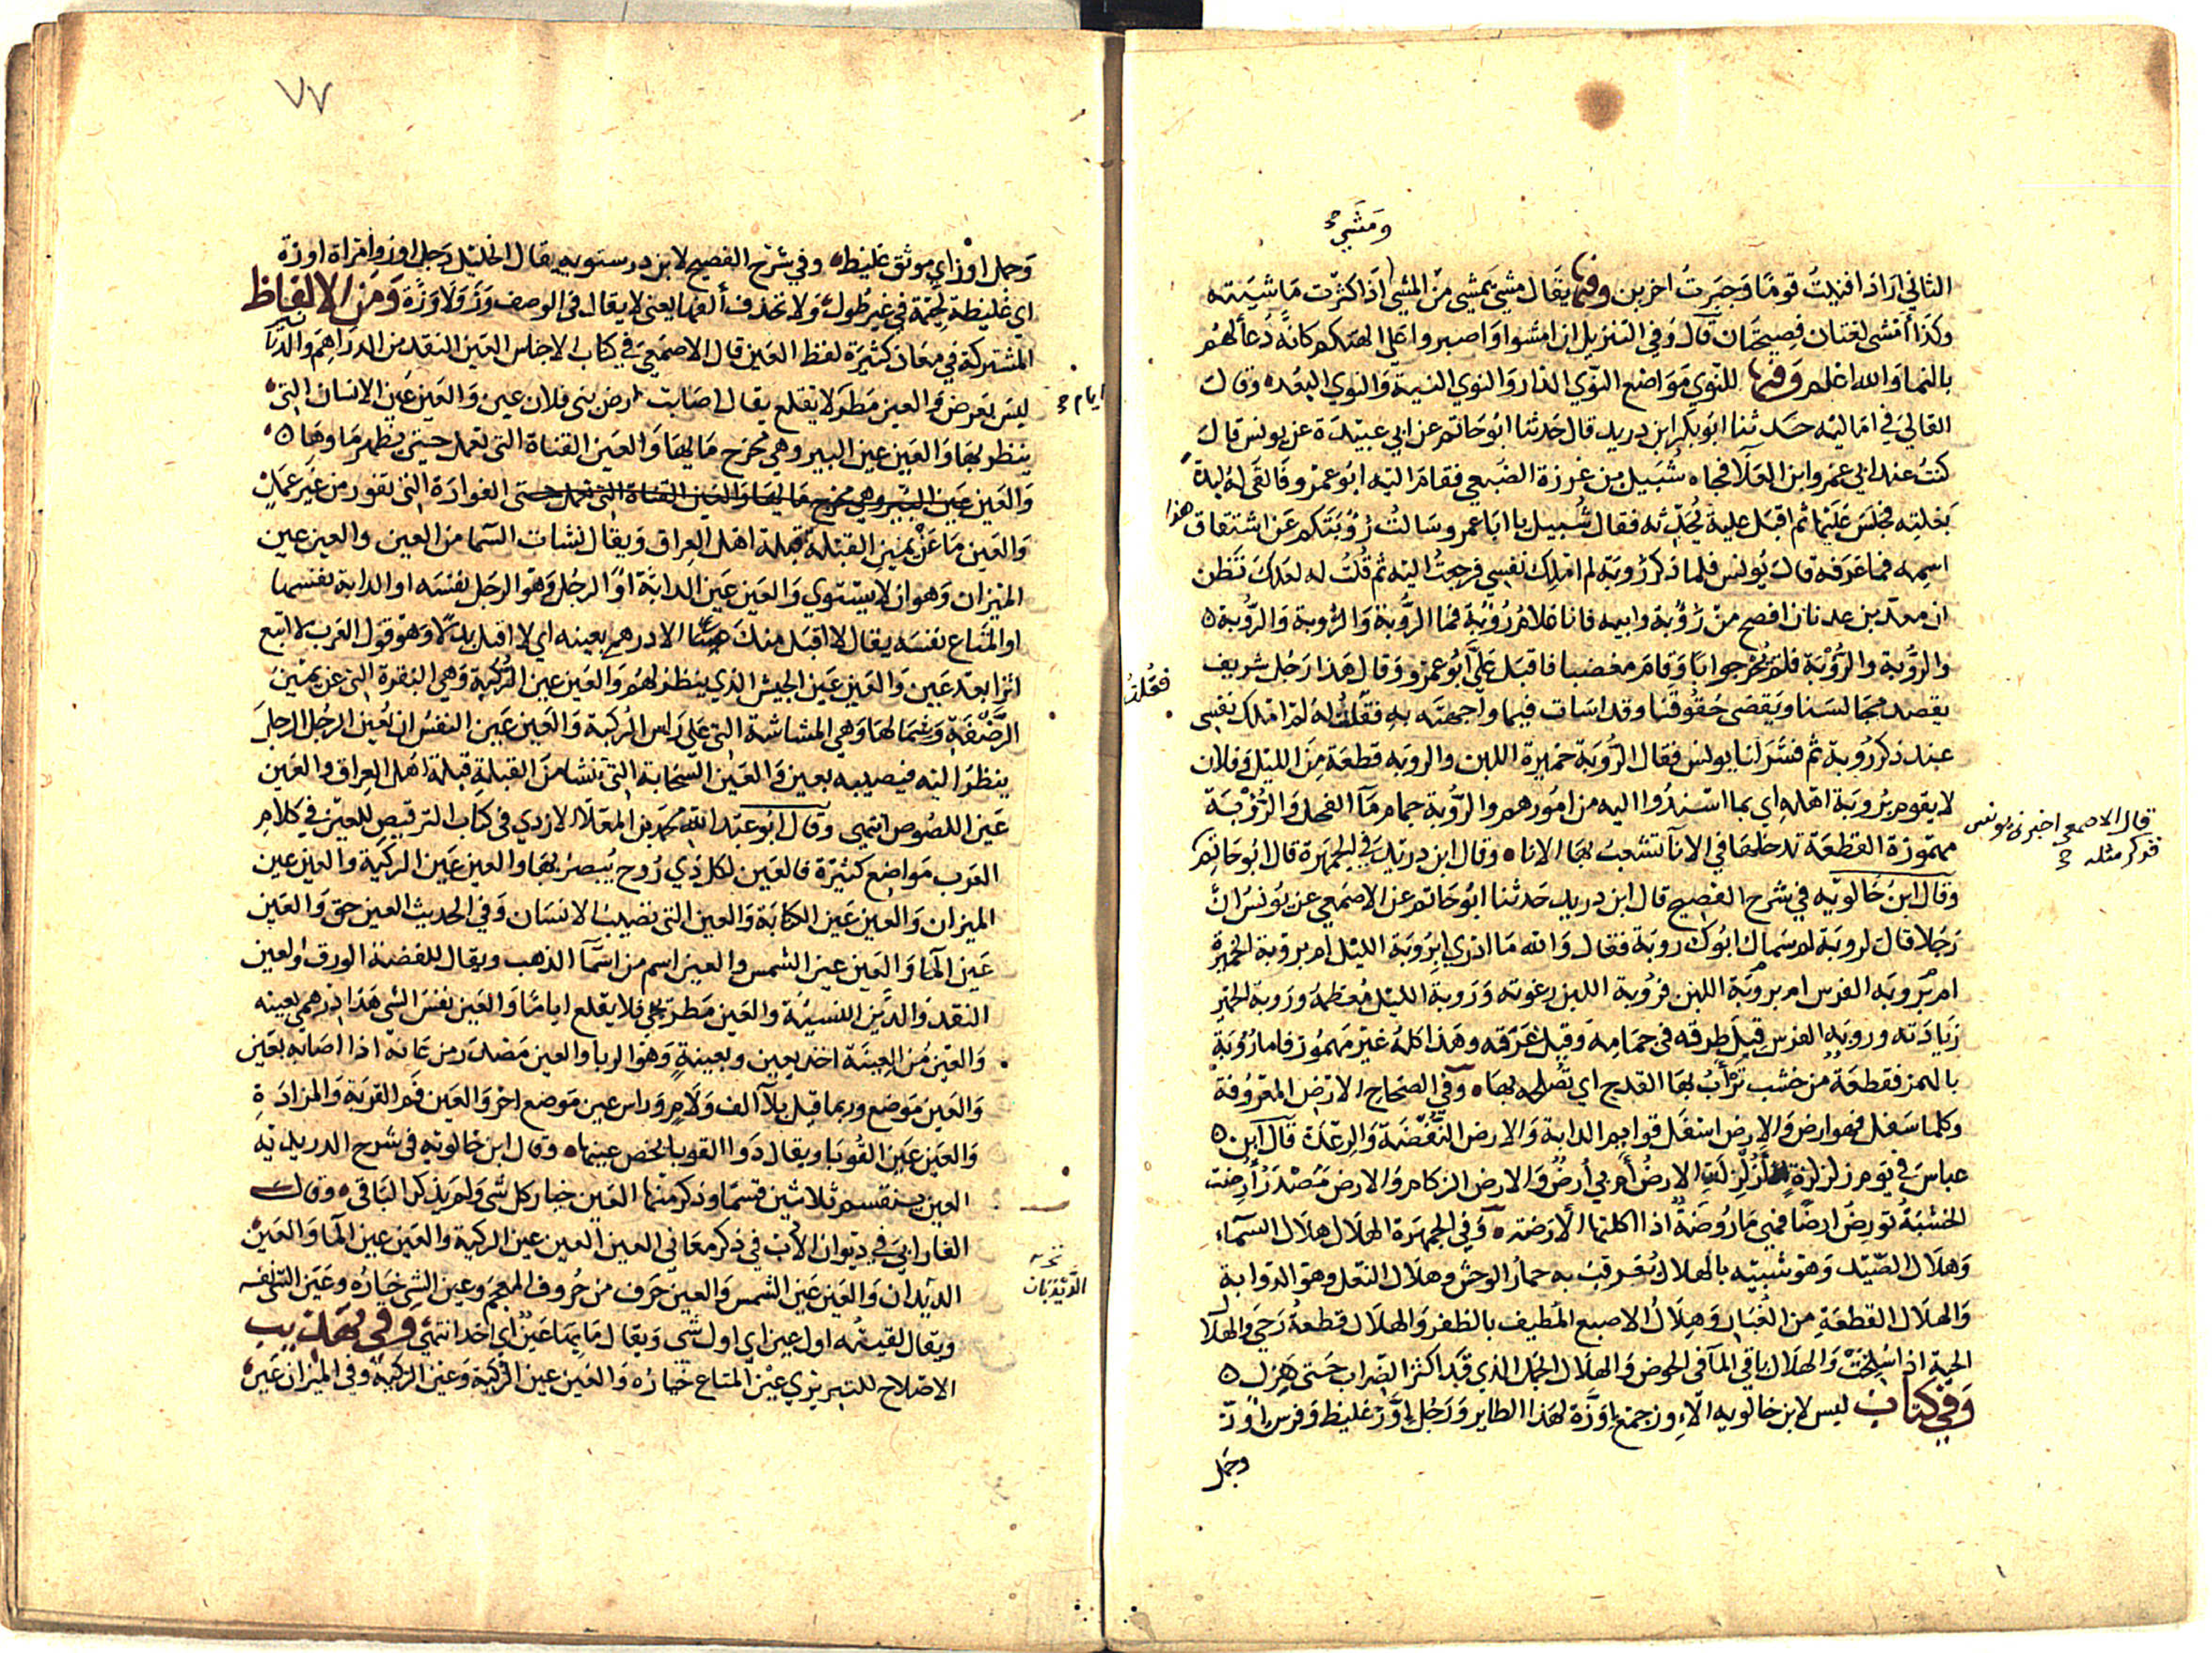 ومشى صح
الثاني اراد اقبلتُ قومًا وَجبَرتُ اخرين وفيها يقَال مشىَ يَمشى منَ المشى اذَا كثرت مَاشيَته
وكذَا امشى لغتان فصيحتَان قال وَفي التنزيل ان امشوا وَاصبروا علَى الهتكم كانهُ دُعَأ لهُم
بالنما وَالله اعلم وَفيها للنّوى مَوَاضع النوَي الدار وَالنوي النيةَ وَالنوي البعُد وقال
القالي في اماليه حَدثنا ابوَ بكر ابن دريد قال حَدثنا ابوُ حَاتم عن ابي عبَيدَة عن يونس قالَ
كنتُ عند ابي عمَرو ابن العَلَا فجاه شُبَيل بن عَزرة الضبَعي فقامَ اليَه ابوُ عَمرو فَالقَى لهُ لبدَة
بَغلته فجلسَ عَليهَا ثم اقبَل عليهِ يُحدّثه فقال شُبيل يا ابَا عمر وسَالتُ رُؤبَتكم عَن اشتقاق هذا
اسمِه فما عَرَفه قالَ يُونس فلما ذكرَ رؤبَة لم املِك نفسِي فرجعتُ اليه ثم قُلتُ له لعَلكَ تَظن
ان معدَ بن عدنان افصح منَ رُؤبَة وابيه فانا غلامُ رُؤبَة فما الرُّوبَة وَالرُوبة وَالرُّوبَة
وَالرُّوبة والرُؤبَة فلم يُحر جوابًا وَقامَ مغضبا فاقبَل عَليَّ ابُو عمرو وَقالَ هَذا رَجُل شريف
يقصد مجَالسَنا وَيقضى حُقُوقنَا وقد اسَات فيما واجَهته بهِ فقلتُ لهُ لم املك نفسِي
عند ذكر رُوبة ثم فسَّرَ لنَا يونس فقالَ الرُوبَة خميرة اللبن والروبَه قطعَة مِنَ الليل وَفلان
لا يقوم برُوبَة اهله اي بما اسنَدُوا اليه من امُورهم والرُّوبة جمام مَآ الفحل وَالرُؤْبَة
مهمَوزة القطعَة تدخلهَا في الانآ تشعب بهَا الاناه وقال ابن دريد في الجمهَرة قال ابوُ حَاتم
قال الاصمعى اخبرنى يونس
فذكر مثله صح
وقالَ ابن خَالويَه في شرح الفصيح قال ابن دريد حَدثنا ابوُ حَاتم عن الاصمعي عن يُونسَ انَّ
رَجلا قالَ لروبَة لم سَماك ابوُكَ روبَة فقال وَالله مَا ادري ابرُوبَة الليْل ام بروبة الخمير
ام بروبَه الفرس ام بروبَة اللبَن فروُبة اللبن رغوته وَرَوبة الليْل مُعظمهُ وَرَوبة الخمير
زيَادَته وروبَه الفرس قيلَ طرقه في جمَامِه وَقيلَ عَرقه وهَذا كلهُ غيْر مَهمُوز فاما رُؤبَة
بالهمز فقطعَة من خشب يُرْأَبُ بهَا القدح اي تُصلح بهَا وَفي الصّحاح الارْض المعرُوفة
وكلما سَفل فهو ارض وَالارض اسفَل قوايم الدابة وَالارض النَفضَة وَالرعدَة قالَ ابن
عباسَ في يَوم زلزلة أزُلزِلَتِ الارضُ أم بي أرضٌ وَالارض الزكام وَالارضَ مَصْدَر أُرضت
الخشبَةُ تؤرضُ ارضًا فهي مَارُوضَة اذا اكلتها الارَضة وَفي الجمهَرة الهلَال هلَال السَماء
وَهلَال الصَّيد وَهوَ شبيه بالهلال تُعَرقبُ به حمارُ الوحش وهلَال النعَل وهو الذوابة
وَالهلَال القطعَة من الغُبَار وَهِلَالُ الاصبع المُطيف بالظفر وَالهلَال قطعةُ رَحَى والهلال
الحية اذا سُلختْ وَالهلَال باقي المآ في الحوض وَالهلَال الجمل الذي قَد اكثر الضرابَ حَتى هَزل
وَفي كتاب ليس لابن خالويه الاوز جمَع اوَزَة لهَذا الطاير وَرَجُل إوَزّ غليظ وَفرس اوَزّ
وجمَل
٧٧
وَجمل اوز اي موثق غليظ وفي شرح الفصيح لابن درستويه يقال الخليل رَجل اوز وامراة اوزة
اى غليظة لحمَة في غير طُول وَلا تحذف ألفها يعنى لا يقال في الوصف وَزّ وَلَا وَزَّة وَمنَ الالفاظ
المشتركة في معَان كثيرَة لفظ العَين قال الاصمَعيَ في كتاب الاجناس العَين النقد من الدرَاهم وَالدنا
ليسَ بَعرض وَالعين مَطَر لا يقلع يقال اصَابت ارض بنى فلان عين وَالعَين عَين الانسان التى
ايام صح
ينظر بهَا وَالعَين عين البير وهي مخرَج مَايهَا وَالعَين القناة التى تعمل حَتى يظهرَ مَاوهَا
وَالعَين الفوارَة التى تفور من غَير عَمَل
وَالعَين مَا عَنْ يمين القبلة قبلة اهل العِراق وَيقال نشات السّما من العين والعين عين
الميزان وَهوَ ان لا يستوي وَالعَين عَين الدابةَ اوَ الرجُل وَهوَ الرجَل نفسَه او الدابة نفسها
او المتَاع نفسَه يقال لا اقبل منكَ الا درهم بعينه اي لا اقبل بدلًا وَهوَ قول العَرب لا اتبع
اثرا بعدَ عَين وَالعَين عَين الجيش الذي ينظر لهُم وَالعَين عين الركبة وَهي النقرة التي عن يمين
الرَّضَفَةِ وَشمَالهَا وَهي المشاشة التى عَلى رَاس الركبة وَالعَين عَين النفس ان يعين الرجُل الرجل
ينظرَ اليْه فيصيبه بعين وَالعَين السحَابة التى تنشا منَ القبلةِ قبلة اهل العراق والعَين
عَين اللصُوص انتهى وقالَ ابو عبد الله محمد بن المعَلَّا الازدي في كتاب الترقيص للعَين في كلام
العَرب مَوَاضع كثيَرة فالعَين لكل ذي رُوح يُبصر بهَا وَالعين عَين الركية والعَين عين
الميزان وَالعَين عَين الكتابَة وَالعين التى تصيب الانسَان وَفي الحديث العين حق وَالعَين
عَين المآ وَالعَين عين الشمس والعين اسم من اسمآ الذهب ويقال للفضة الورق وَالعين
النقد وَالدَين النسيئَة والعَين مَطر يجي فلا يقلع ايامًا وَالعَين نفسَ الشى هَذا درهمي بعينه
وَالعَين منَ العِينَة اخذ بعين وبعينةٍ وَهوَ الربا وَالعين مَصْدَر من عَانهَ اذا اصَابه بعَين
وَالعَين مَوضع وربما قيل بلا الف وَلَام وَراس عين مَوضع اخر وَالعَين فَم القربَة وَالمزادَةِ
وَالعَين عَين القُوبَا ويقال دَوا القوبا بخص عينهَا وقال ابن خالويَه في شرح الدريديَه
العين ينقسم ثلاثين قسمَا وذكر منهَا العَين خيار كل شى وَلم يذكر البَاقي وقال
الفارَابيَ في ديوَان الاَدب في ذكر معَاني العين العين عين الركية والعَين عين المآ وَالعَين
الديدَبان وَالعَين عَين الشمس وَالعين حَرف من حُروف المعجم وعين الشي خيَارُه وعَين الشى نفسه
نخـه
الدَّيْدَبَان
ويقال لقيتُه اول عين اي اول شى وَيقال مَا بهَا عَين اي احَد انتهىَ وفي تهذيب
الاصْلاح للتبريزي عَيْن المتَاع خيَارُه وَالعَين عين الركبَة وَعَين الركيَة وفي الميزان عَيْن